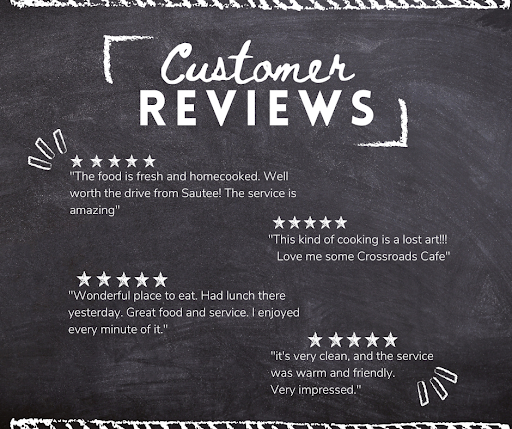 Customer
REVIEWS
"The food is fresh and homecooked. Well
worth the drive from Sautee! The service is
amazing"
"This kind of cooking is a lost art!!!
Love me some Crossroads Cafe"
"Wonderful place to eat. Had lunch there
yesterday. Great food and service. I enjoyed
every minute of it."
"it's very clean, and the service
was warm and friendly.
Very impressed."